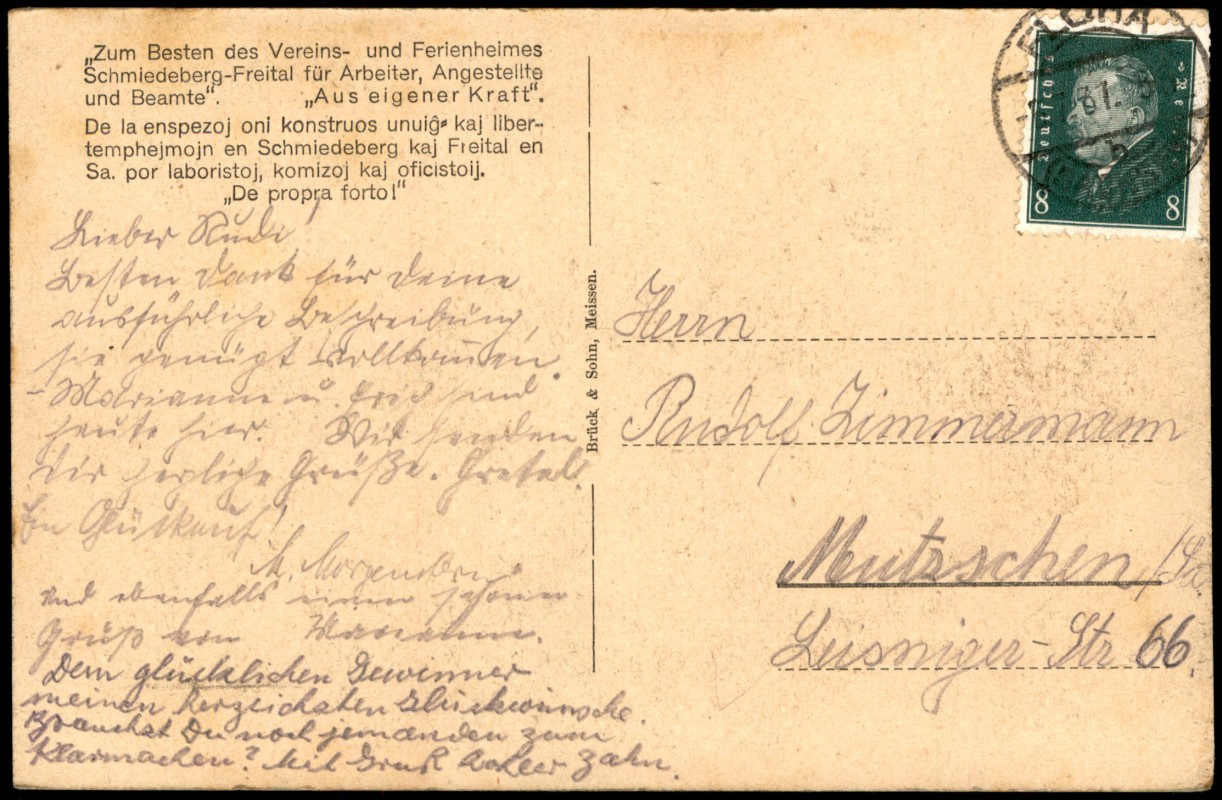 „Zum Besten des Vereins- und Ferienheimes
Schmiedeberg-Freital für Arbeiter, Angestellte
und Beamte“. „Aus eigener Kraft“.
De la enspezoj oni konstruos unuiĝ- kaj liber-
temphejmojn en Schmiedeberg kaj Freital en
Sa. por laboristoj, komizoj kaj oficistoij.
„De propra forto!“
Lieber Rudi!
Besten Dank für Deine
ausführliche Beschreibung,
sie genügt vollkommen.
- Marianne u. Erich sind
heute hier. Wir senden
Dir herzliche Grüße. Gretel.
Ein Glückauf!
und ebenfalls einen schönen
Gruß von Marianne.
Dem glücklichen Gewinner
meinen herzlichsten Glückwünsche.
Brauchst Du noch jemanden zum
Klarmachen? Mit Gruß Zahn.
Brück & Sohn, Meissen.
FLÖHA
Deutsches Reich
8 8
Herrn
Rudolf Zimmermann
Mutzschen /Sa.
Leisniger-Str 66.